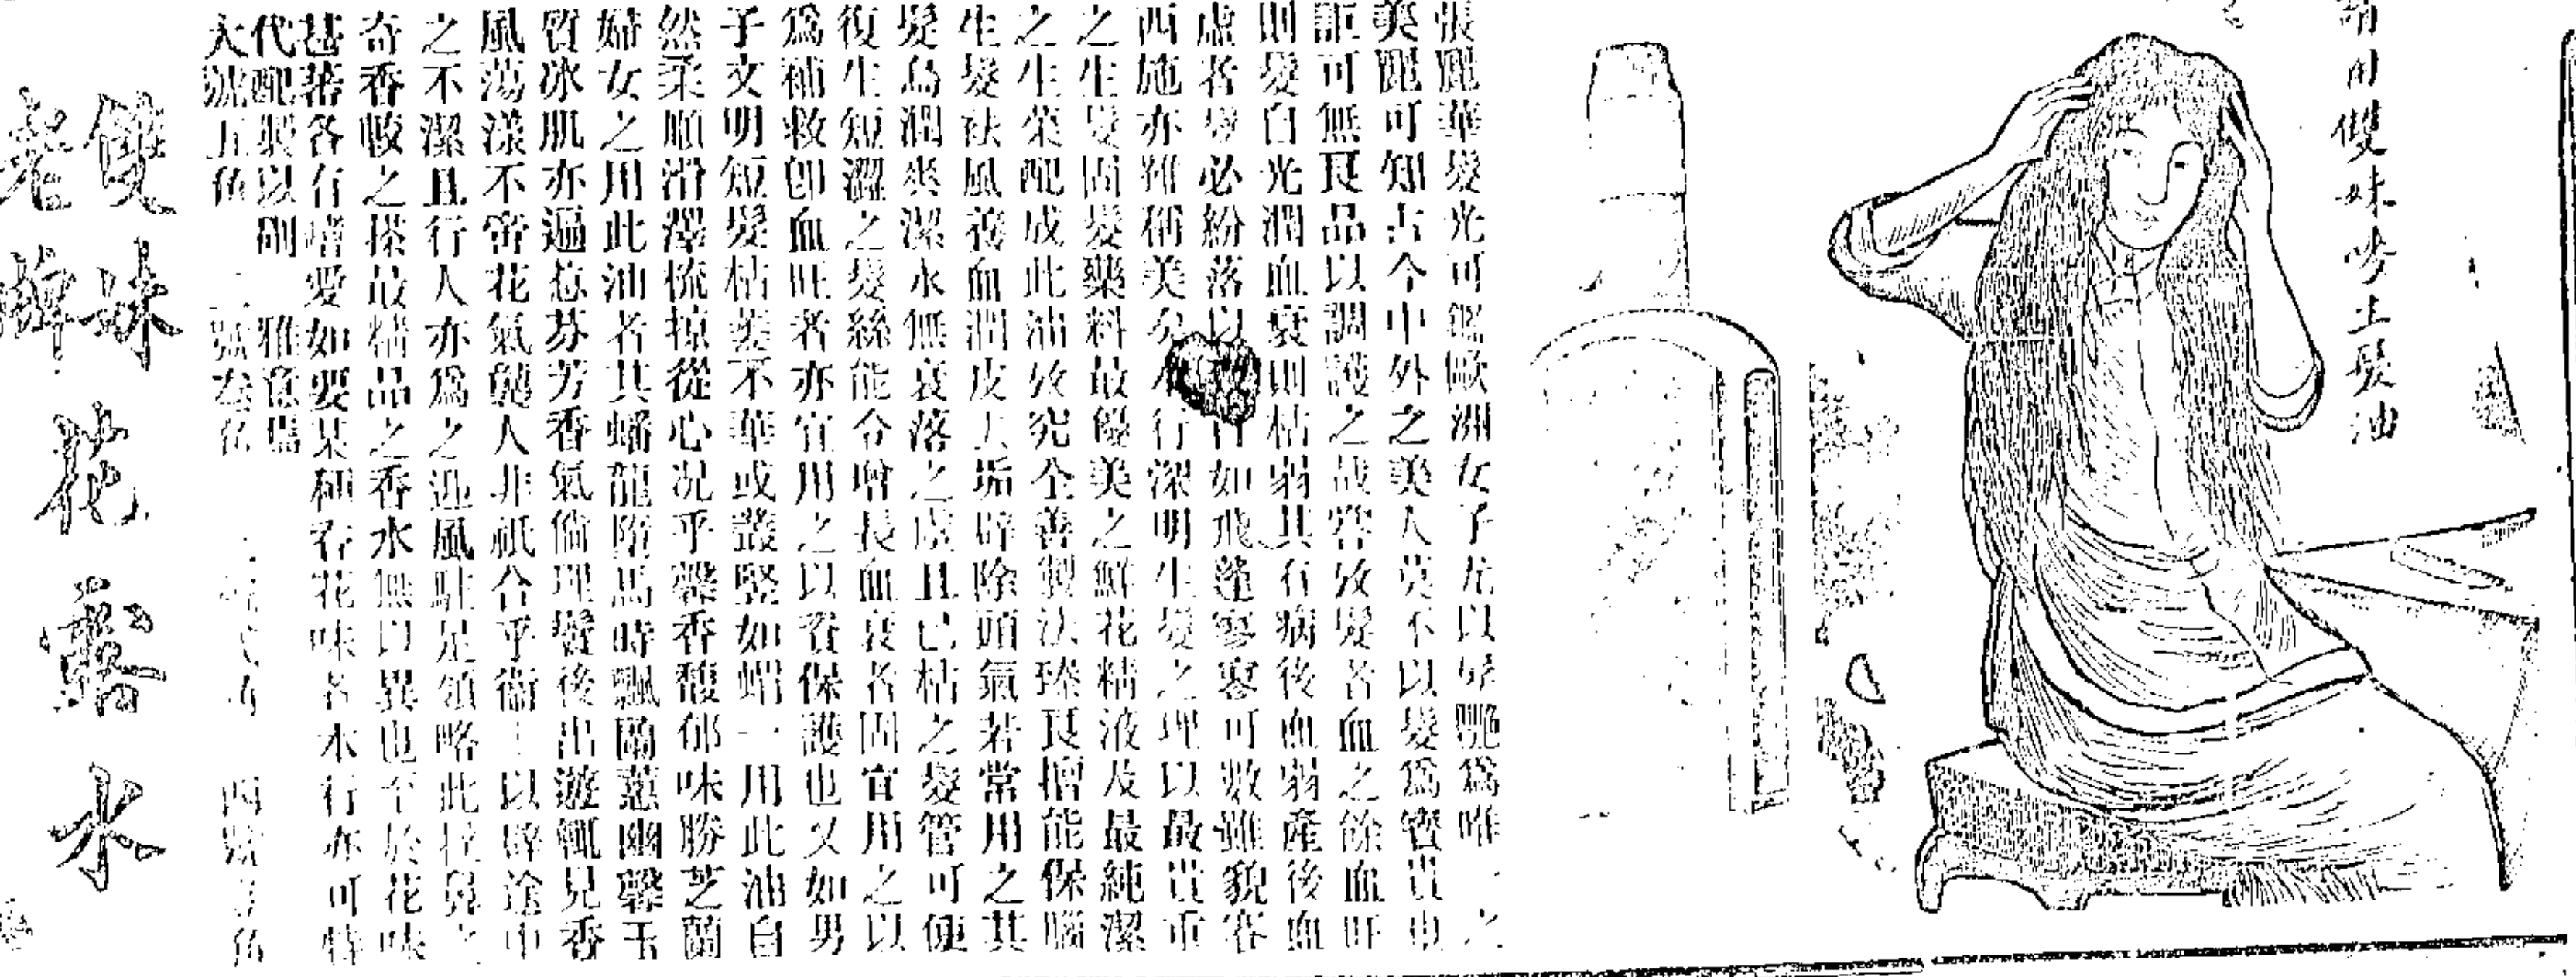 請用雙妹嘜生髮油
張麗華髮光可鑑歐洲女子尤以髮艷爲唯一之
美麗可知古今中外之美人莫不以髮爲寶貴也
詎可無良品以調護之哉窃攷髮者血之餘血旺
則髮自光潤血衰則枯弱其有病後血弱產後血
虛者髮必紛落以則白如飛蓬寥寥可數雖貌若
西施亦難稱美行深明生髮之理以最貴重
之生髮固髮藥料最優美之鮮花精液及最純潔
之生榮配成此油攷究全善製法臻良擅能保腦
生髮祛風養血潤皮去垢辟除頭氣若常用之其
髮烏潤爽潔永無衰落之虞且已枯之髮管可使
復生短澀之髮絲能令增長血衰者固宜用之以
爲補救卽血旺者亦宜用之以資保護也又如男
子文明短髮枯萎不華或叢竪如蝟一用此油自
然柔順滑澤梳掠從心况乎馨香馥郁味勝芝蘭
婦女之用此油者其蟠龍墮馬時飄蘭蕙幽馨玉
質冰肌亦遍惹芬芳香氣倘理鬢後出遊輒見香
風蕩漾不啻花氣襲人非祇合乎衞 以辟途中
之不潔且行人亦爲之迎風駐足領略此撲鼻之
奇香較之搽最精品之香水無以異也至於花味
甚蕃各有嗜愛如要某種花味各水行亦可特
代配製以副 雅意焉
大號五角 二號叁角 四號
雙妹
老牌
花露水